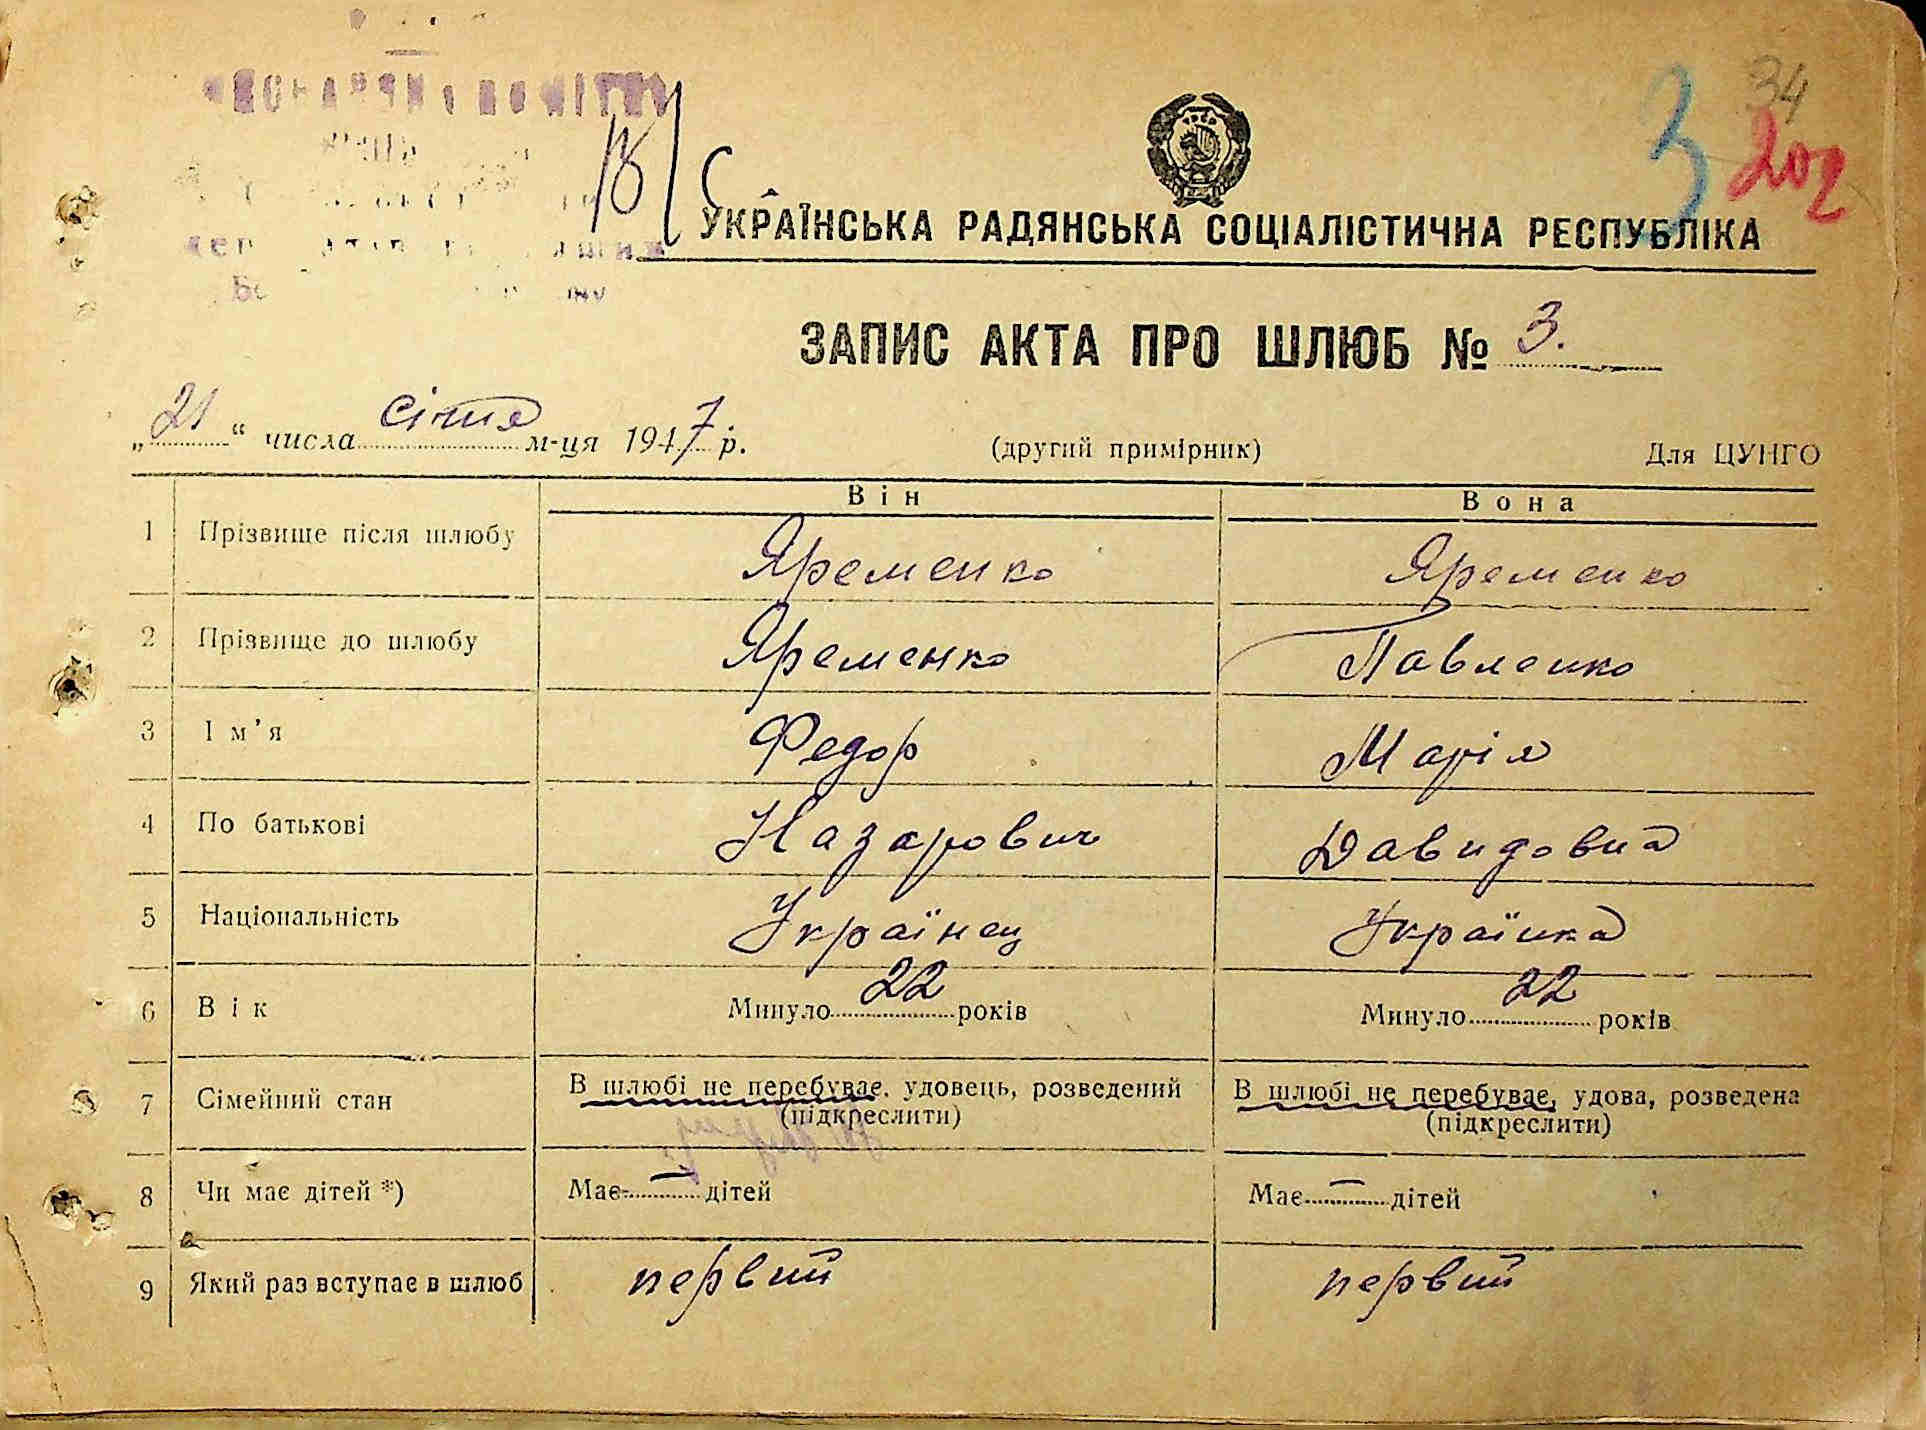 34
3 202
В/С
УКРАЇНСЬКА РАДЯНСЬКА СОЦІАЛІСТИЧНА РЕСПУБЛІКА
ЗАПИС АКТА ПРО ШЛЮБ № 3.
„21“ числа січня м-ця 1947 р. (другий примірник) Для ЦУНГО
Він Вона
1 Прізвище після шлюбу Яременко Яременко
2 Прізвище до шлюбу Яременко Павленко
3 Ім’я Федор Марія
4 По батькові Назарович Давидовна
5 Національність Українец Українка
6 Вік Минуло 22 років Минуло 22 років
7 Сімейний стан В шлюбі не перебуває, удовець, розведений В шлюбі не перебуває, удова, розведена
(підкреслити) (підкреслити)
8 Чи має дітей *) Має — дітей Має — дітей
9 Який раз вступає в шлюб первий первий